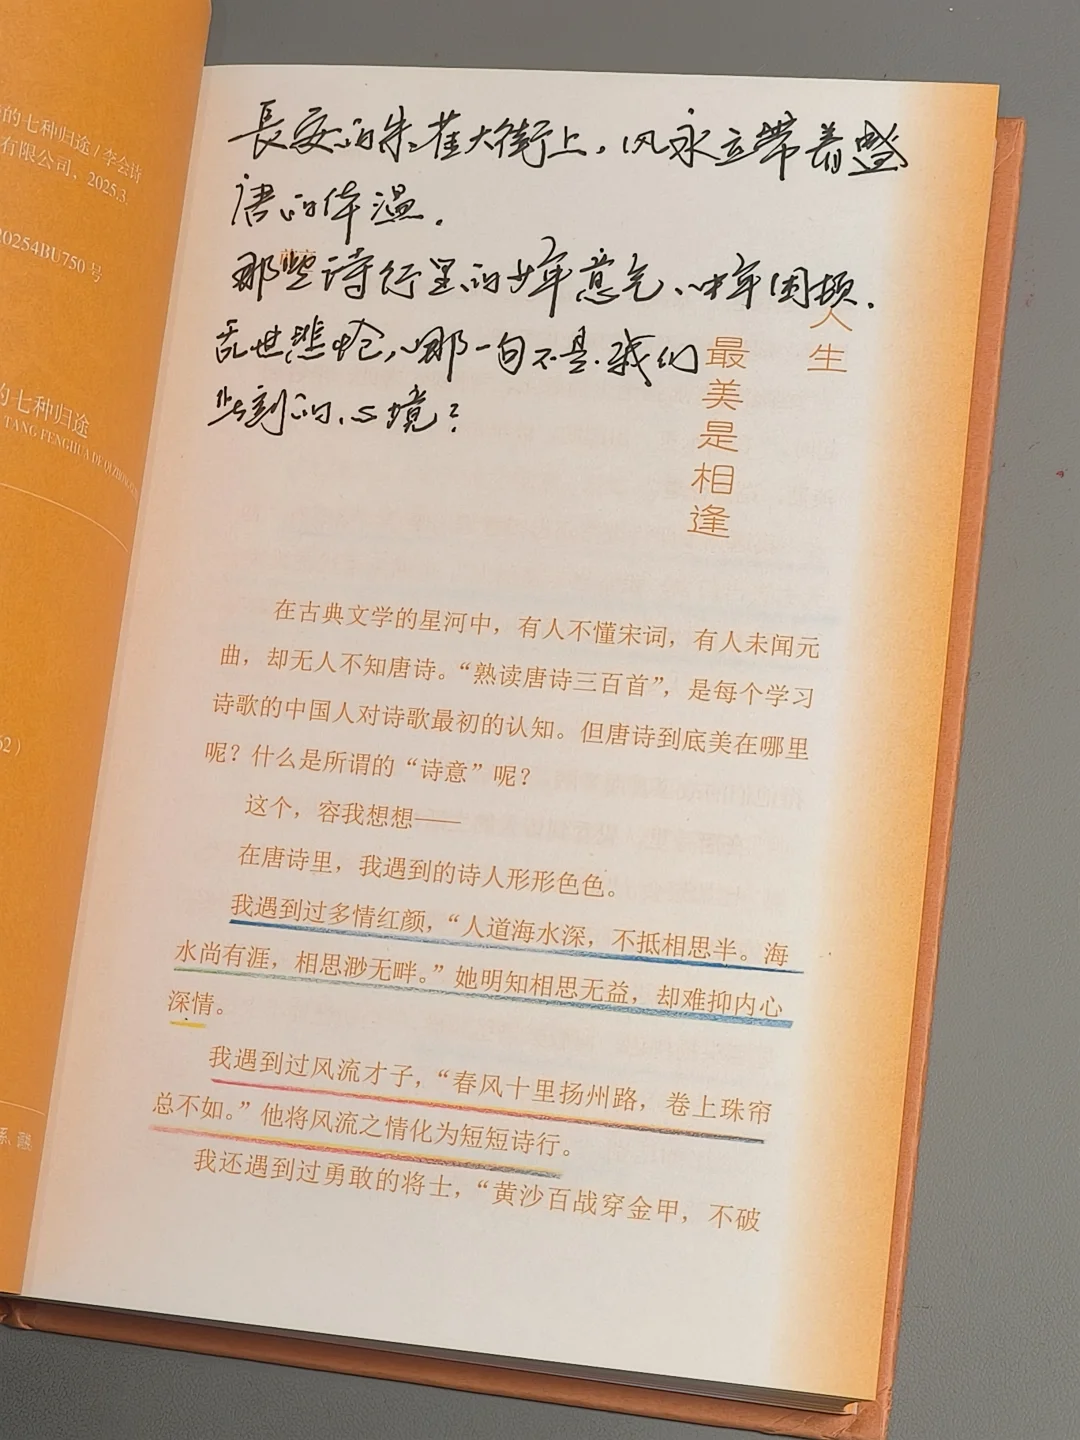 的七种归途/李会诗
有限公司，2025.3
20254BU750号
的七种归途
TANG FENGHUA DE QIZHONG
62）
長安的朱雀大街上，风永远带着盛
唐的体温.
那些诗行里的少年意气、中年困顿.
乱世悲怆，哪一句不是我们
此刻的心境？
人生
最美是相逢
在古典文学的星河中，有人不懂宋词，有人未闻元
曲，却无人不知唐诗。“熟读唐诗三百首”，是每个学习
诗歌的中国人对诗歌最初的认知。但唐诗到底美在哪里
呢？什么是所谓的“诗意”呢？
这个，容我想想——
在唐诗里，我遇到的诗人形形色色。
我遇到过多情红颜，“人道海水深，不抵相思半。海
水尚有涯，相思渺无畔。”她明知相思无益，却难抑内心
深情。
我遇到过风流才子，“春风十里扬州路，卷上珠帘
总不如。”他将风流之情化为短短诗行。
我还遇到过勇敢的将士，“黄沙百战穿金甲，不破